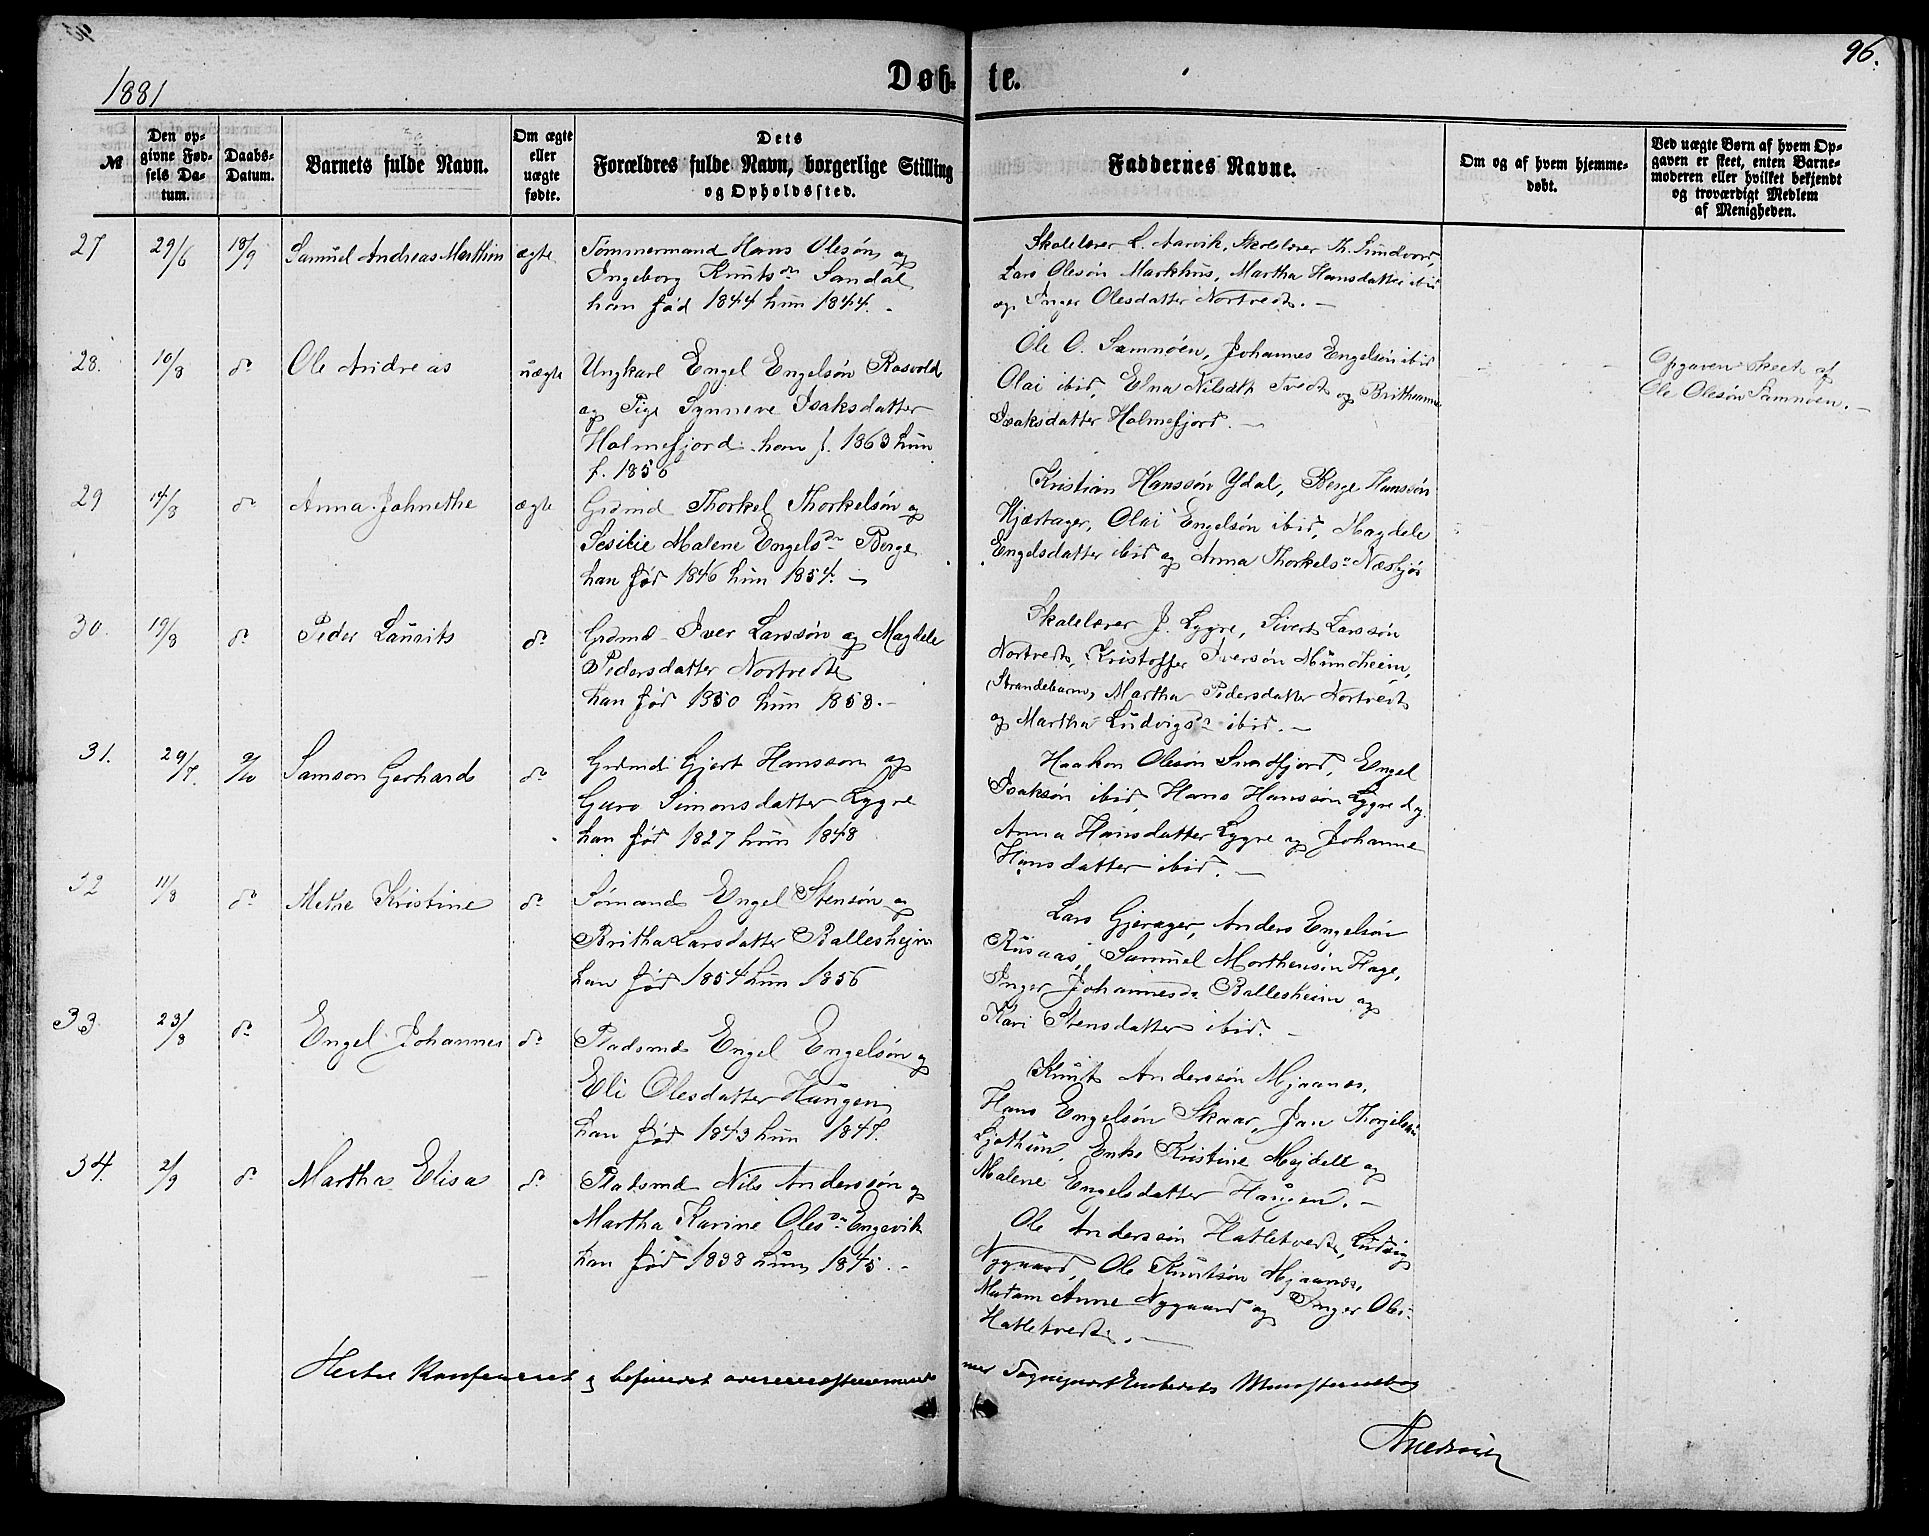 1881
Døb- te.
96.
№
Den op-
givne Fød-
sels Da-
tum.
Daabs-
Datum.
Barnets fulde Navn.
Om ægte
eller
uægte
fødte.
Dets
Forældres fulde Navn, borgerlige Stilling
og Opholdssted.
Faddernes Navne.
Om og af hvem hjemme-
døbt.
Ved uægte Børn af hvem Op-
gaven er skeet, enten Barne-
moderen eller hvilket bekjendt
og troværdigt Medlem
af Menigheden.
27 29/6 18/9 Samuel Andreas Marthin ægte
Tømmermand Hans Olesøn og
Ingeborg Knutsdr Sandal
han fød 1844 hun 1844. -
Skolelærer L. Aarvik, Skolelærer Th. Sundvord,
Lars Olesøn Markhus, Martha Hansdatter ibid
og Inger Olesdatter Nortvedt. -
28. 10/8 do Ole Andreas uægte
Ungkarl Engel Engelsøn Rosvold
og Pige Synneve Isaksdatter
Holmefjord. han f. 1863 hun
f. 1856
Ole O. Samnøen, Johannes Engelsøn ibid
Olai ibid, Elna Nilsdtr Tvedt og Brithanna
Isaksdatter Holmefjord. -
Opgaven skeet af
Ole Olesøn Samnøen. -
29 14/8 do Anna Johnethe ægte
Grdmd Thorkel Thorkelsøn og
Sesilie Malene Engelsdr Berge
han fød 1846 hun 1854. -
Kristian Hanssøn Ydal, Berge Hanssøn
Hjærtager, Olai Engelsøn ibid, Magdele
Engelsdatter ibid og Anna Thorkelsdr
30. 19/8 do Peder Laurits do
Grdmd Iver Larssøn og Magdele
Pedersdatter Nortvedt
han fød 1850 hun 1858. -
Skolelærer J. Lygre, Sivert Larssøn
Nortvedt, Kristoffer Iversøn Mundheim,
Strandebarm, Martha Pedersdatter Nortvedt
og Martha Ludvigsdr ibid. -
31. 29/7. 9/10 Samson Gerhard do
Grdmd Gjert Hanssøn og
Guro Simonsdatter Lygre
han fød 1827 hun 1848
Haakon Olesøn Sundfjord, Engel
Isaksøn ibid, Hans Hanssøn Lygre d.y.
Anna Hansdatter Lygre og Johanne
Hansdatter ibid. -
32 11/8 do Methe Kristine do
Sømand Engel Stensøn og
Britha Larsdatter Ballesheim
han fød 1854 hun 1856
Lars Gjerager, Anders Engelsøn
Rusaas, Samuel Morthensøn Hage,
Inger Johannesdr Ballesheim og
Kari Stensdatter ibid. -
33. 23/8 do Engel Johannes do
Pladsmd Engel Engelsøn og
Eli Olesdatter Haugen
han fød 1843 hun 1847.
Knut Anderssøn Mjaanæs,
Hans Engelsøn Skaar, Jan
Ljothun, Enke Kristine Mejdell og
Malene Engelsdatter Haugen. -
34. 2/9 do Martha Elisa do
Pladsmd Nils Anderssøn og
Martha Karine Olesdr Engevik
han fød 1838 hun 1845. -
Ole Anderssøn Hatletvedt, Ludvig
Nygaard, Ole Knutsøn Mjaanæs,
Madam Anne Nygaard og Inger Oles-
Hatletvedt. -
konfereret og befundet overensstemmende
med Sogneprest Embedets Ministerialbog